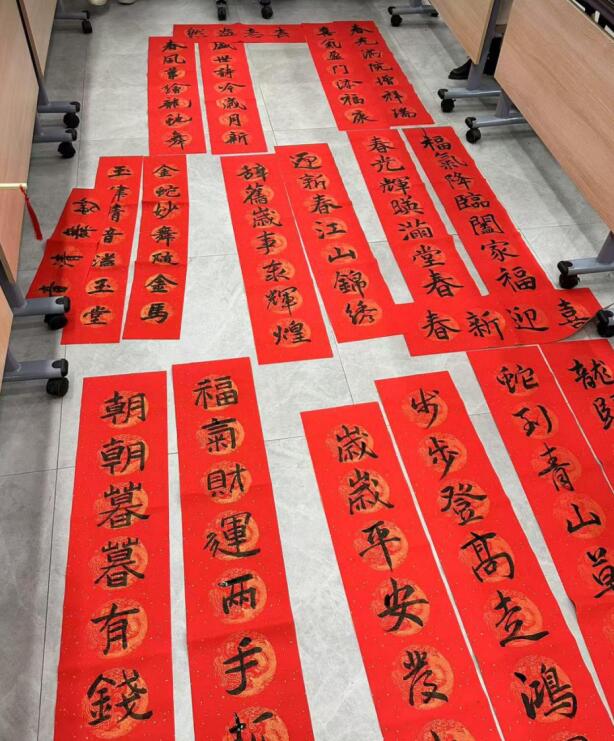 春光满院增祥瑞
氣盈门添福
盛世詩吟歲月新
春風繪龍蛇舞
福氣降臨闔家福
春光輝映滿堂春
喜迎新春
迎新春江山錦绣
辞舊歲事業輝煌
金蛇妙舞隨金馬
玉律清音滿玉堂
妙舞清音
龍
蛇到青山草
步步登高走鴻
歲歲平安發
福氣財運两手
朝朝暮暮有錢